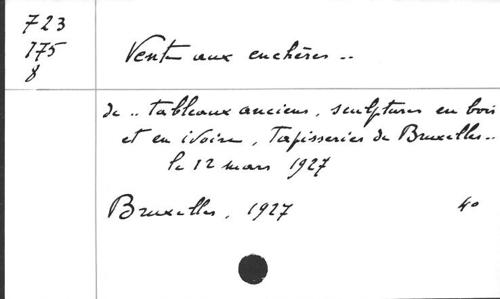 723
175
8
Vente aux enchères ..
de .. tableaux anciens, sculptures en bois
et en ivoire, Tapisseries de Bruxelles..
le 12 mars 1927
Bruxelles, 1927 4°